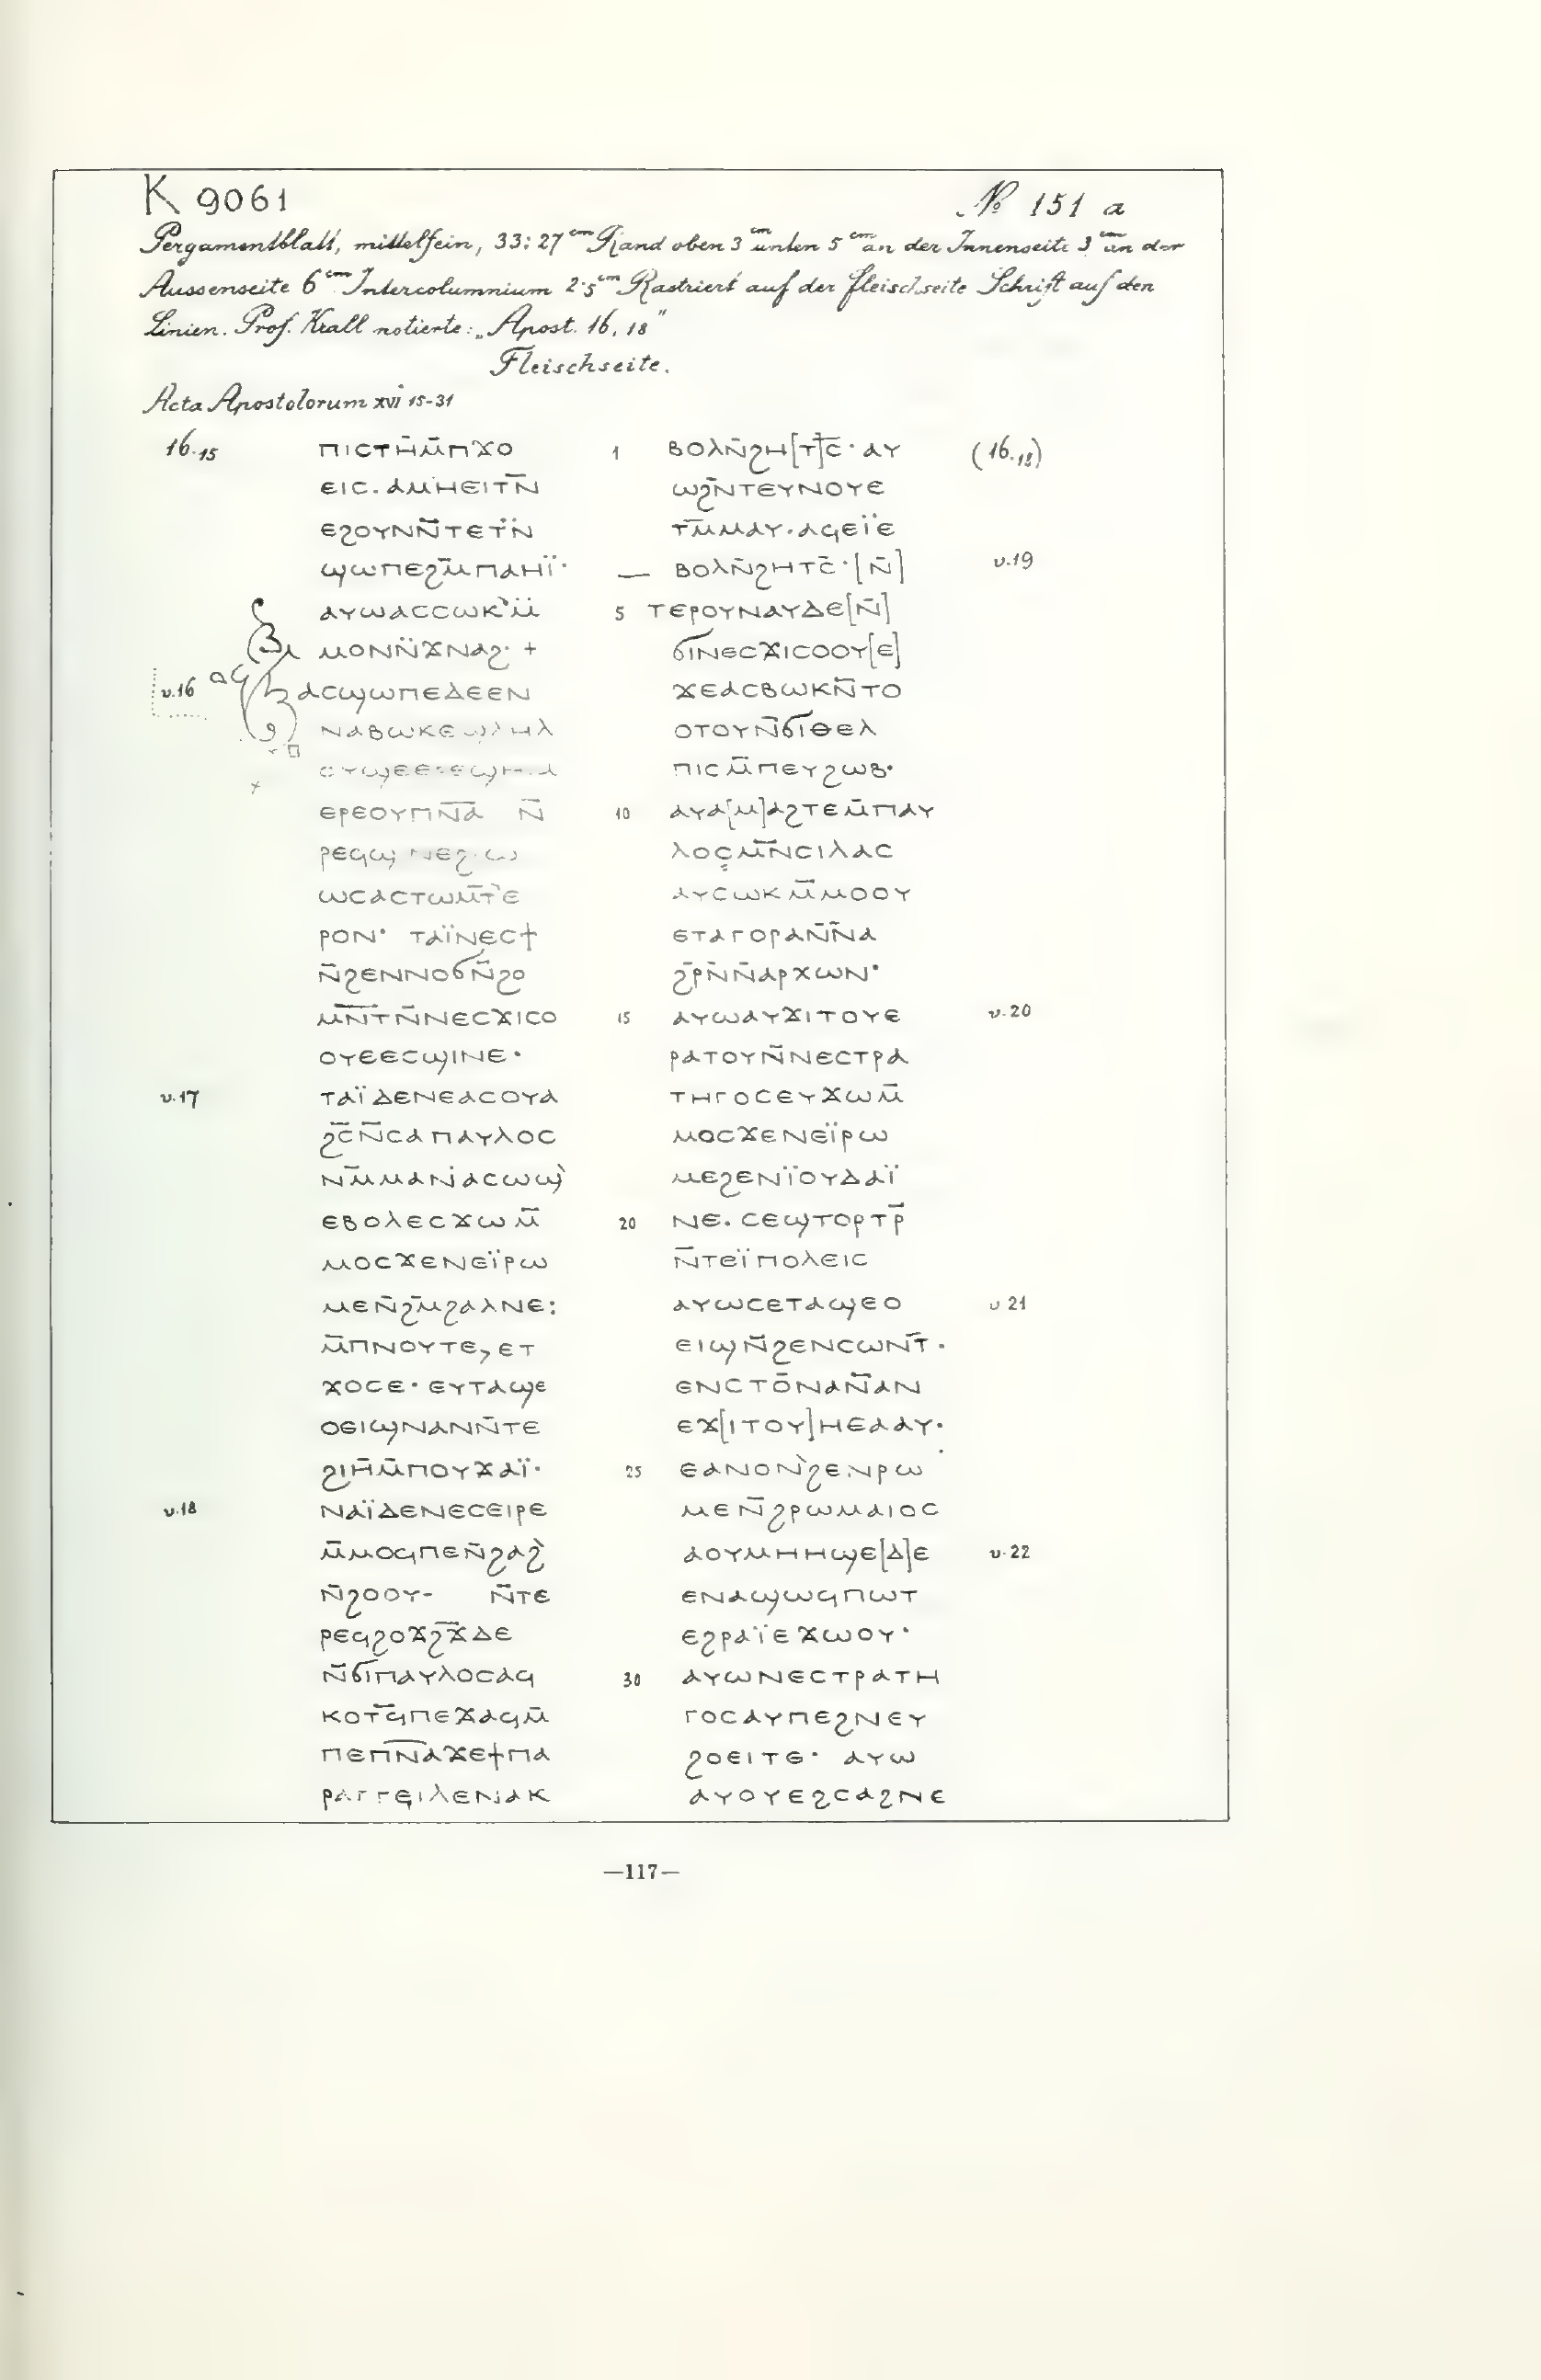 K 9061
№ 151 a
Pergamentblatt, mittelfein, 33:27 cm Rand oben 3 cm unten 5 cm an der Innenseite 3 cm an der
Aussenseite 6 cm Intercolumnium 2·5 cm Rastriert auf der Fleischseite Schrift auf den
Linien. Prof. Krall notierte: „Apost. 16, 18"
Fleischseite.
Acta Apostolorum xvi 15-31
16.15
ⲡⲓⲥⲧⲏ̄ⲙ̄ⲡϫⲟ
ⲉⲓⲥ. ⲁⲙⲏⲉⲓⲧⲛ̄
ⲉϩⲟⲩⲛⲛ̄ⲧⲉⲧⲛ̄
ϣⲱⲡⲉϩⲙ̄ⲡⲁⲏⲓ̈·
ⲁⲩⲱⲁⲥⲥⲱⲕ̀ⲙ̄
ⲙⲟⲛⲛ̄ϫⲛⲁϩ· +
v.16 ⲁⲥϣⲱⲡⲉⲇⲉⲉⲛ
ⲛⲁⲃⲱⲕⲉϣⲗⲏⲗ
ⲉⲣⲉⲟⲩⲡ̄ⲛ̄ⲁ̄ ⲛ̄
ⲱⲥⲁⲥⲧⲱⲙ̄ⲧ̄ⲉ
ⲣⲟⲛ· ⲧⲁⲓ̈ⲛⲉⲥϯ
ⲛ̄ϩⲉⲛⲛⲟϭⲛ̄ϩⲟ
ⲙ̄ⲛ̄ⲧⲛ̄ⲛⲉⲥϫⲓⲥⲟ
ⲟⲩⲉⲉⲥϣⲓⲛⲉ·
v.17 ⲧⲁⲓ̈ⲇⲉⲛⲉⲁⲥⲟⲩⲁ
ϩⲥ̄ⲛ̄ⲥⲁⲡⲁⲩⲗⲟⲥ
ⲛⲙ̄ⲙⲁⲛⲁⲥⲱϣ̀
ⲉⲃⲟⲗⲉⲥϫⲱⲙ̄
ⲙⲟⲥϫⲉⲛⲉⲓ̈ⲣⲱ
ⲙⲉⲛ̄ϩⲙ̄ϩⲁⲗⲛⲉ:
ⲙ̄ⲡⲛⲟⲩⲧⲉ, ⲉⲧ
ϫⲟⲥⲉ· ⲉⲩⲧⲁϣⲉ
ⲟⲉⲓϣⲛⲁⲛⲛ̄ⲧⲉ
ϩⲓⲏ̄ⲙ̄ⲡⲟⲩϫⲁⲓ̈·
v.18 ⲛⲁⲓ̈ⲇⲉⲛⲉⲥⲉⲓⲣⲉ
ⲙ̄ⲙⲟϥⲡⲉⲛ̄ϩⲁϩ̀
ⲛ̄ϩⲟⲟⲩ- ⲛ̄ⲧⲉ
ⲣⲉϥϩⲟϫϩϫ̄ⲇⲉ
ⲛ̄ϭⲓⲡⲁⲩⲗⲟⲥⲁϥ
ⲕⲟⲧϥ̄ⲡⲉϫⲁϥⲙ̄
ⲡⲉⲡ̄ⲛ̄ⲁ̄ϫⲉϯⲡⲁ
ⲣⲁⲅⲅⲉⲓⲗⲉⲛⲁⲕ
1 ⲃⲟⲗⲛ̄ϩⲏ[ⲧ]ⲥ̄· ⲁⲩ (16.18)
ⲱϩⲛ̄ⲧⲉⲩⲛⲟⲩⲉ
ⲧⲙ̄ⲙⲁⲩ. ⲁϥⲉⲓ̈ⲉ
ⲃⲟⲗⲛ̄ϩⲏⲧⲥ̄·[ⲛ̄] v.19
5 ⲧⲉⲣⲟⲩⲛⲁⲩⲇⲉ[ⲛ̄]
ϭⲓⲛⲉⲥϫⲓⲥⲟⲟⲩ[ⲉ]
ϫⲉⲁⲥⲃⲱⲕⲛ̄ⲧⲟ
ⲟⲧⲟⲩⲛ̄ϭⲓⲑⲉⲗ
ⲡⲓⲥⲙ̄ⲡⲉⲩϩⲱⲃ·
10 ⲁⲩⲁ[ⲙ]ⲁϩⲧⲉⲙ̄ⲡⲁⲩ
ⲗⲟⲥⲙⲛ̄ⲥⲓⲗⲁⲥ
ⲁⲩⲥⲱⲕⲙ̄ⲙⲟⲟⲩ
ⲉⲧⲁⲅⲟⲣⲁⲛ̄ⲛ̄ⲁ
ϩⲣ̄ⲛ̄ⲛ̄ⲁⲣⲭⲱⲛ·
15 ⲁⲩⲱⲁⲩϫⲓⲧⲟⲩⲉ v.20
ⲣⲁⲧⲟⲩⲛ̄ⲛⲉⲥⲧⲣⲁ
ⲧⲏⲅⲟⲥⲉⲩϫⲱⲙ̄
ⲙⲟⲥϫⲉⲛⲉⲓ̈ⲣⲱ
ⲙⲉϩⲉⲛⲓ̈ⲟⲩⲇⲁⲓ̈
20 ⲛⲉ. ⲥⲉϣⲧⲟⲣⲧⲣ̄
ⲛ̄ⲧⲉⲓ̈ⲡⲟⲗⲉⲓⲥ
ⲁⲩⲱⲥⲉⲧⲁϣⲉⲟ v 21
ⲉⲓϣⲛ̄ϩⲉⲛⲥⲱⲛⲧ̄·
ⲉⲛⲥⲧⲟ̄ⲛⲁⲛ̄ⲁⲛ
ⲉϫ[ⲓⲧⲟⲩ]ⲏⲉⲁⲁⲩ·
25 ⲉⲁⲛⲟⲛ̀ϩⲉⲛⲣⲱ
ⲙⲉⲛ̄ϩⲣⲱⲙⲁⲓⲟⲥ
ⲁⲟⲩⲙⲏⲏϣⲉ[ⲇ]ⲉ v.22
ⲉⲛⲁϣⲱϥⲡⲱⲧ
ⲉϩⲣⲁⲓ̈ⲉϫⲱⲟⲩ·
30 ⲁⲩⲱⲛⲉⲥⲧⲣⲁⲧⲏ
ⲅⲟⲥⲁⲩⲡⲉϩⲛⲉⲩ
ϩⲟⲉⲓⲧⲉ· ⲁⲩⲱ
ⲁⲩⲟⲩⲉϩⲥⲁϩⲛⲉ
—117—